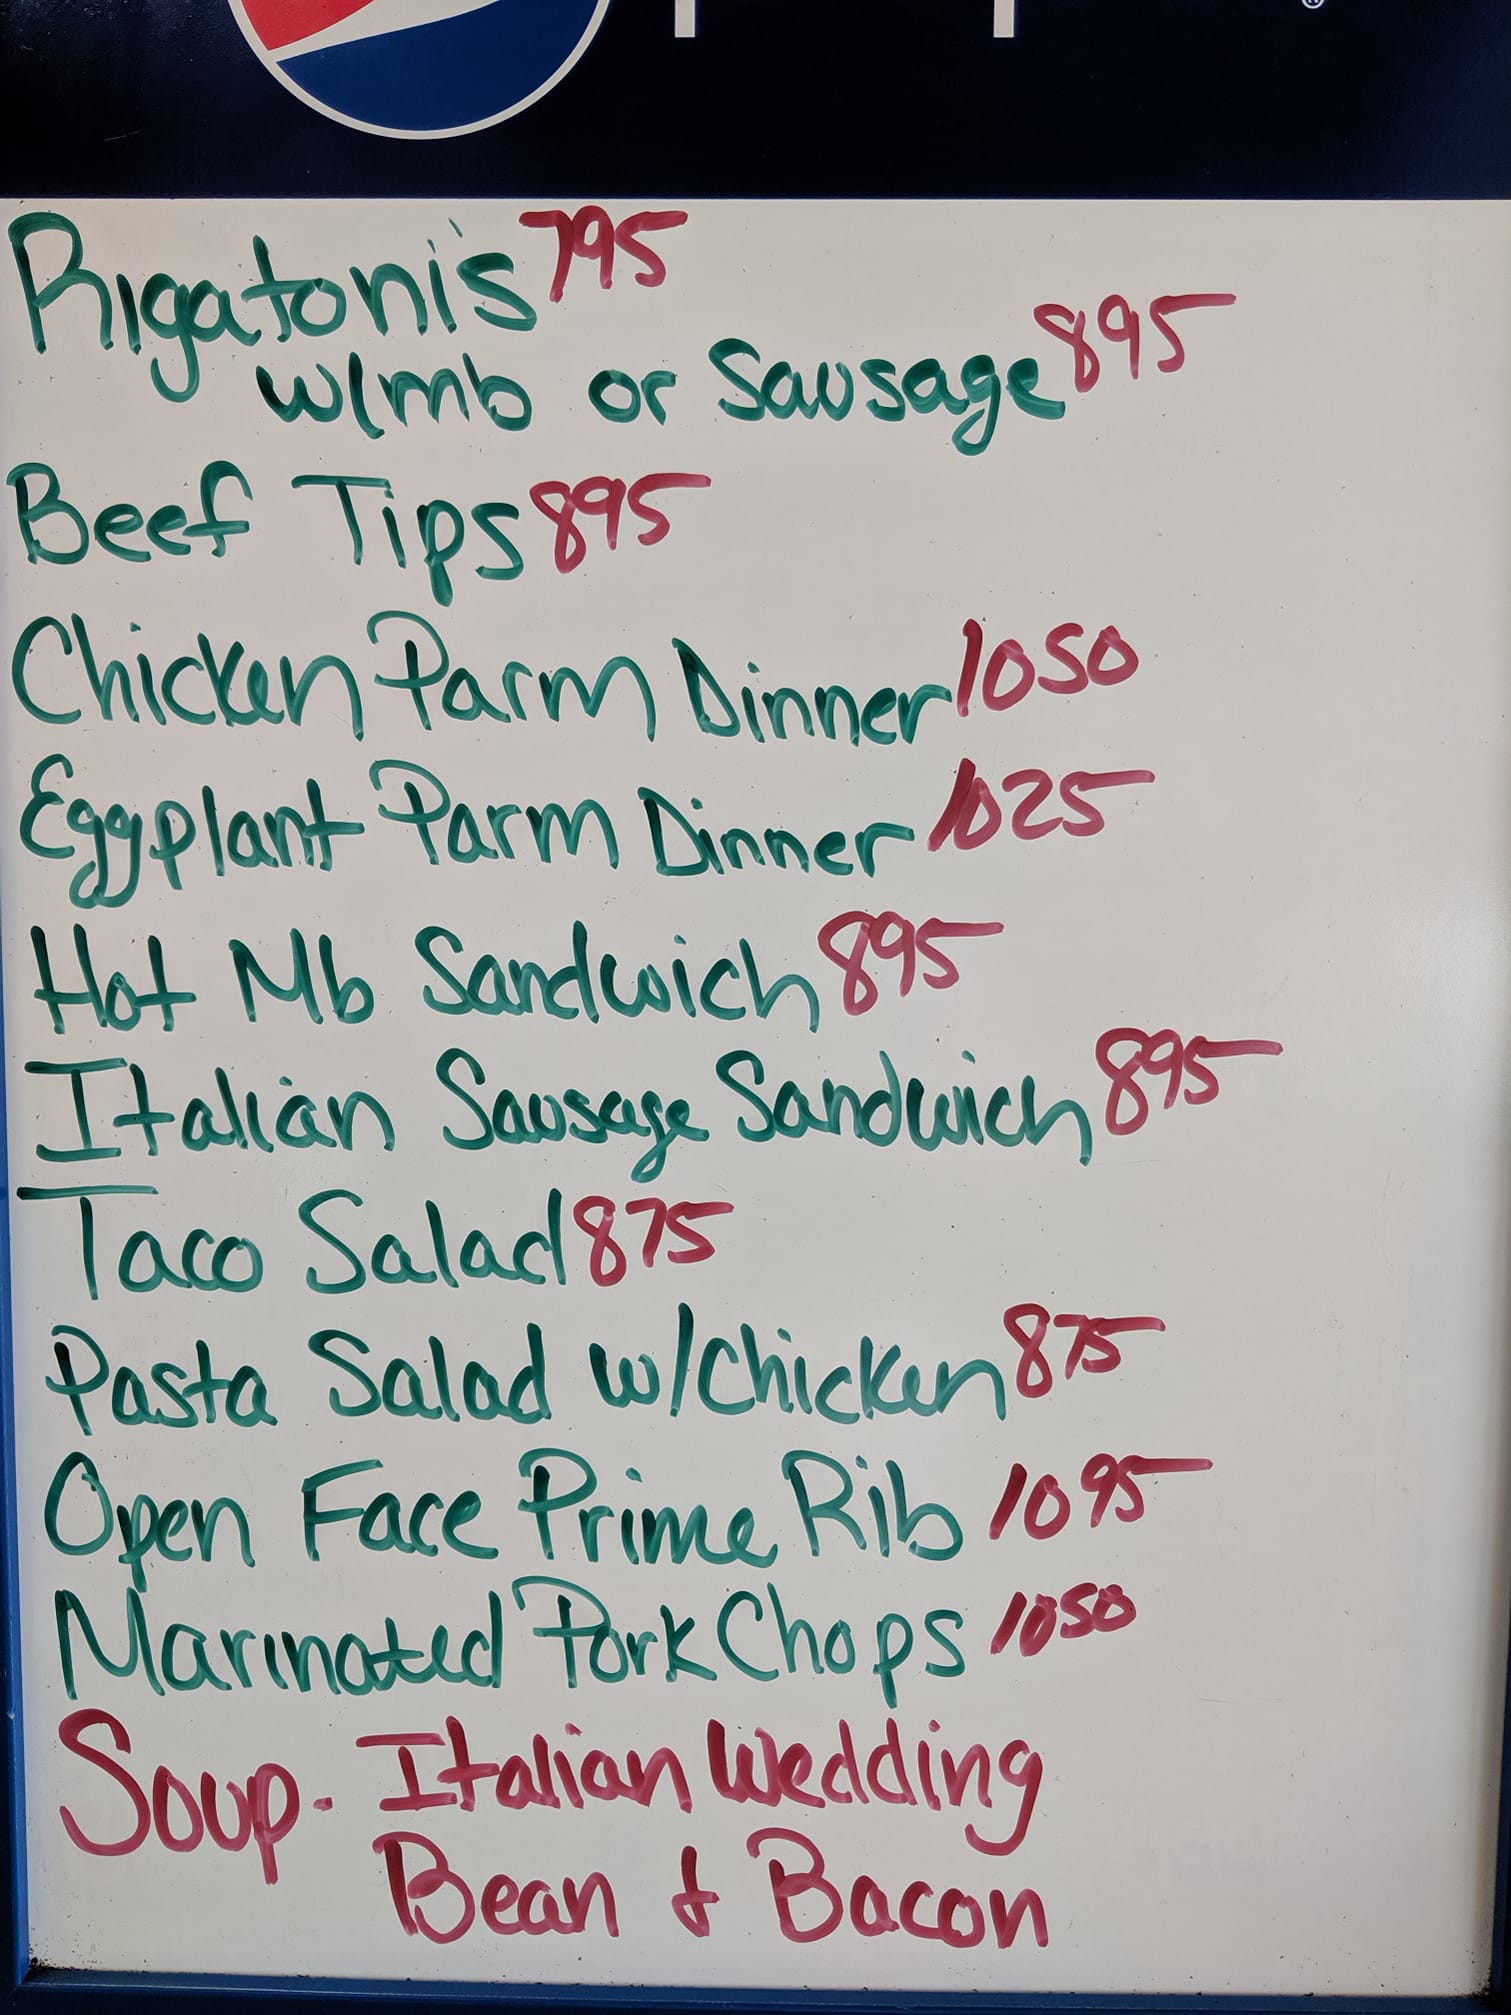 Rigatoni's 795
w/mb or Sausage 895
Beef Tips 895
Chicken Parm Dinner 1050
Eggplant Parm Dinner 1025
Hot Mb Sandwich 895
Italian Sausage Sandwich 895
Taco Salad 875
Pasta Salad w/Chicken 875
Open Face Prime Rib 1095
Marinated Pork Chops 1050
Soup. Italian Wedding
Bean & Bacon